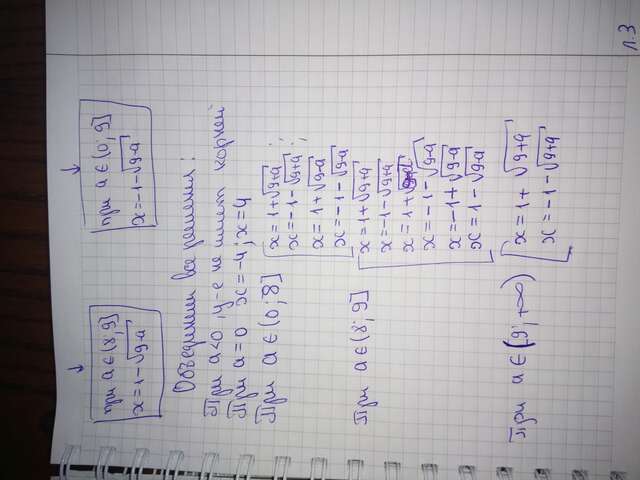 ↓
при a∈(8;9]
x=1-√9-a
↓
при a∈(0;9]
x=-1-√9-a
Объединим все решения:
При a<0, у-е не имеет корней
При a=0 x=-4; x=4
При a∈(0;8]
x=1+√9+a;
x=-1-√9+a;
x=1+√9-a
x=-1-√9-a
При a∈(8;9]
x=1+√9+a
x=-1-√9+a
x=1+√9-a
x=-1-√9-a
x=-1+√9-a
x=1-√9-a
При a∈(9;+∞)
x=1+√9+a
x=-1-√9+a
л.3